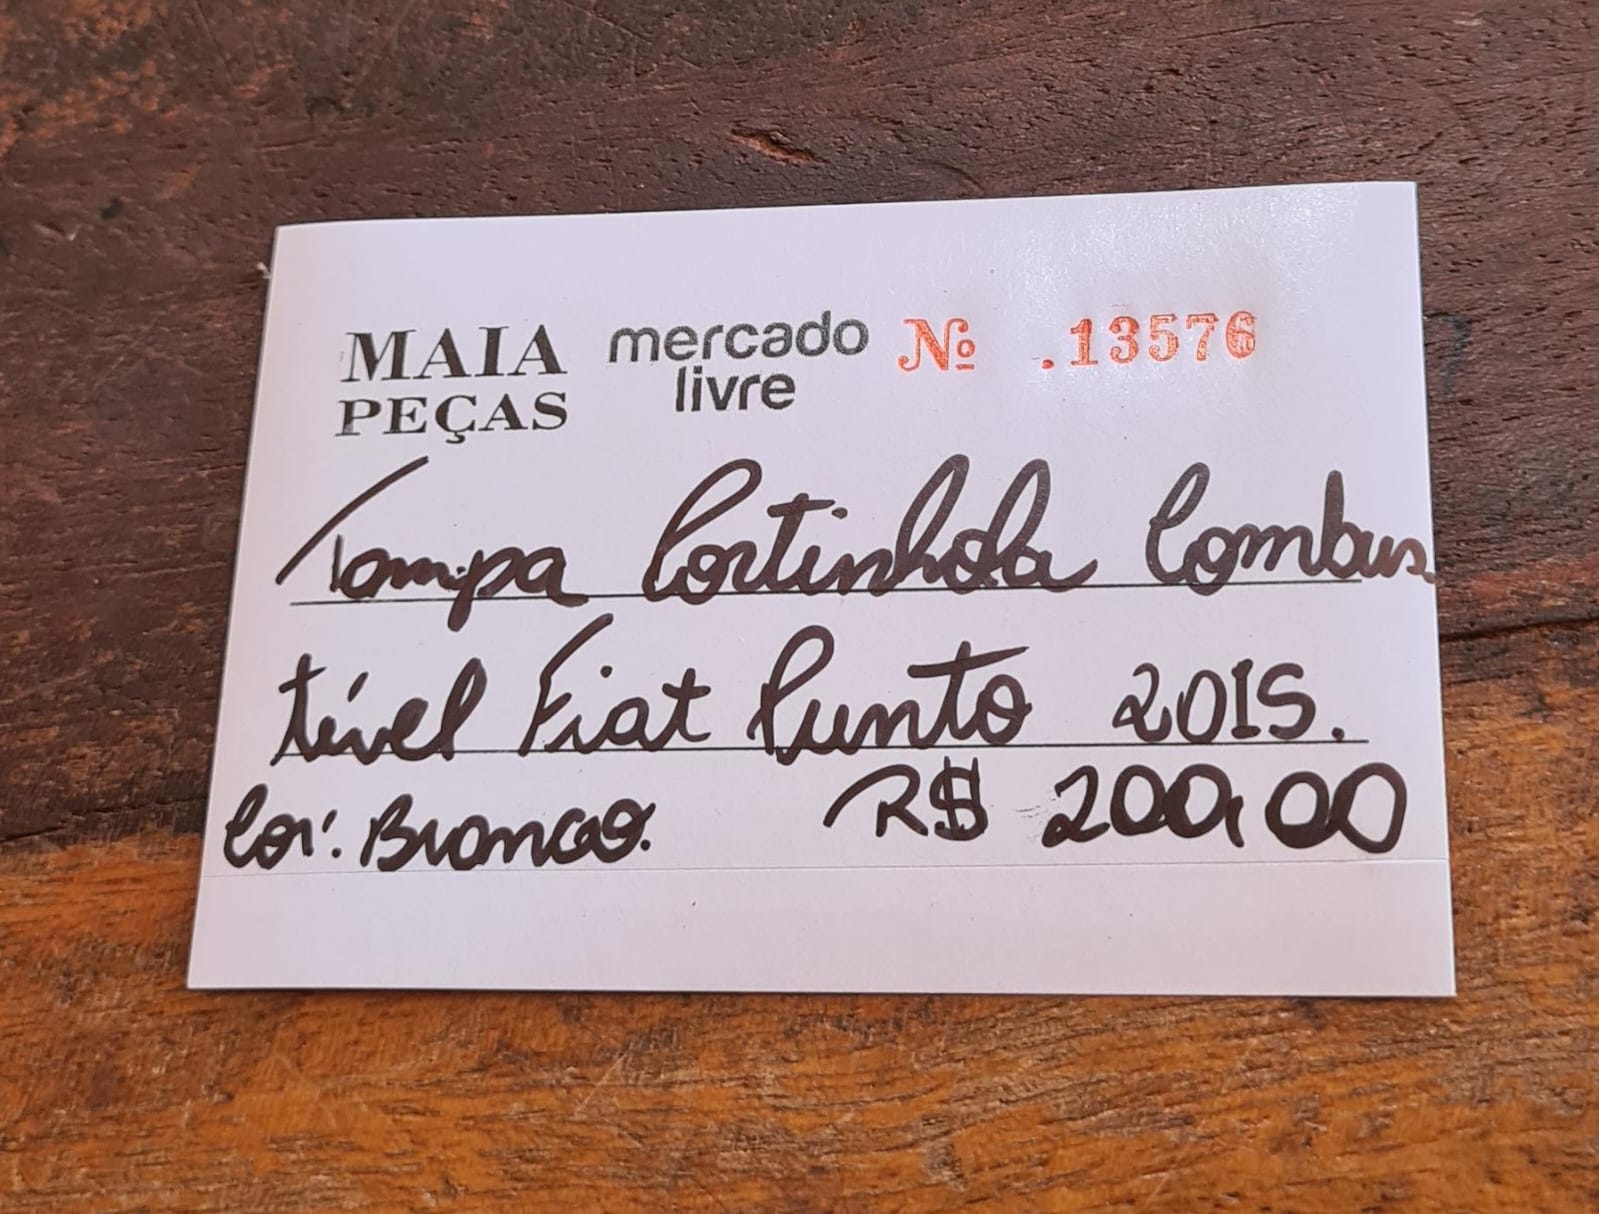 MAIA PEÇAS
mercado livre
Nº .13576
Tampa Portinhola Combus
tível Fiat Punto 2015.
Cor: Branco. R$ 200,00